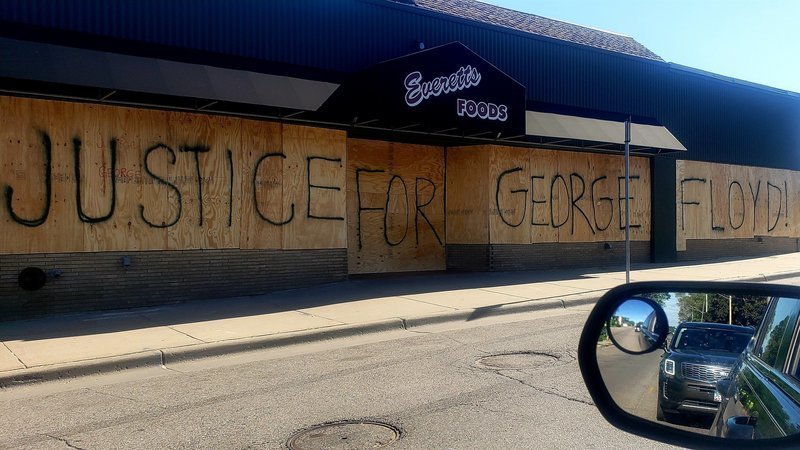 Everetts
FOODS
JUSTICE FOR GEORGE FLOYD!
GEORGE